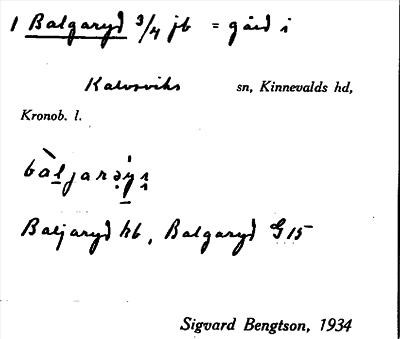 1 Balgaryd 3/4 jb = gård i
Kalvsviks sn, Kinnevalds hd,
Kronob. l.
Baljaryd hb, Balgaryd G 15
Sigvard Bengtson, 1934